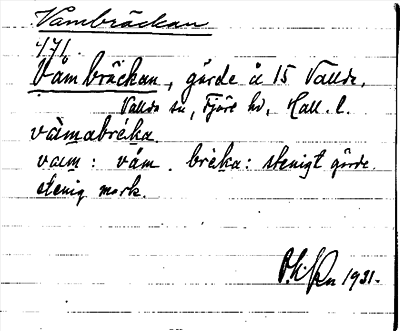 Vambräckan
471.
Våmbräckan, gärde å 15 Vallda,
Vallda sn, Fjäre hd, Hall. l.
våmabrèka
vam: våm. brèka: stenigt gärde.
stenig mark.
1931.